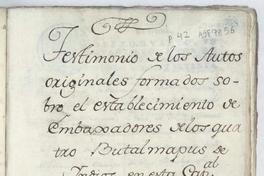 Testimonio de los Autos
originales formados so-
tre el establecimiento de
Embaxadores de los qua
tro Butalmapus de
al
Indios en esta Cap.